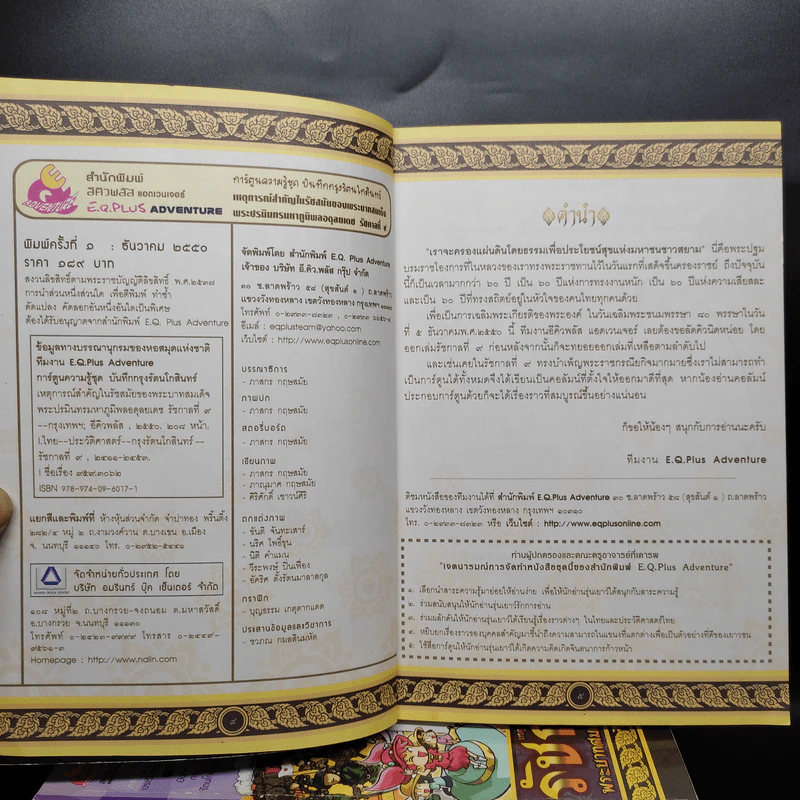 สำนักพิมพ์
อีคิวพลัส แอดเวนเจอร์
E.Q.PLUS ADVENTURE
EQ
ADVENTURE
การ์ตูนความรู้ชุด บันทึกกรุงรัตนโกสินทร์
เหตุการณ์สำคัญในรัชสมัยของพระบาทสมเด็จ
พระปรมินทรมหาภูมิพลอดุลยเดช รัชกาลที่ ๙
พิมพ์ครั้งที่ ๑ : ธันวาคม ๒๕๕๐
ราคา ๑๘๙ บาท
สงวนลิขสิทธิ์ตามพระราชบัญญัติลิขสิทธิ์ พ.ศ.๒๕๓๗
การนำส่วนหนึ่งส่วนใด เพื่อตีพิมพ์ ทำซ้ำ
ดัดแปลง คัดลอกอันหนึ่งอันใดเป็นพิเศษ
ต้องได้รับอนุญาตจากสำนักพิมพ์ E.Q. Plus Adventure
ข้อมูลทางบรรณานุกรมของหอสมุดแห่งชาติ
ทีมงาน E.Q.Plus Adventure
การ์ตูนความรู้ชุด บันทึกกรุงรัตนโกสินทร์
เหตุการณ์สำคัญในรัชสมัยของพระบาทสมเด็จ
พระปรมินทรมหาภูมิพลอดุลยเดช รัชกาลที่ ๙
--กรุงเทพฯ: อีคิวพลัส , ๒๕๕๐. ๒๐๘ หน้า.
I.ไทย--ประวัติศาสตร์--กรุงรัตนโกสินทร์--
รัชกาลที่ ๙ , ๒๔๑๑-๒๔๕๓.
I ชื่อเรื่อง ๙๕๙.๓๐๖๒
ISBN 978-974-09-6017-1
แยกสีและพิมพ์ที่ ห้างหุ้นส่วนจำกัด จำปาทอง พริ้นติ้ง
๒๘๒/๔ หมู่ ๒ ถ.งามวงศ์วาน ต.บางเขน อ.เมือง
จ. นนทบุรี ๑๑๑๔๐ โทร. ๐-๒๙๕๒-๕๔๔๑
จัดจำหน่ายทั่วประเทศ โดย
บริษัท อมรินทร์ บุ๊ค เซ็นเตอร์ จำกัด
๑๐๘ หมู่ที่๒ ถ.บางกรวย-จงถนอม ต.มหาสวัสดิ์
อ.บางกรวย จ.นนทบุรี ๑๑๑๓๐
โทรศัพท์ ๐-๒๔๒๓-๙๙๙๙ โทรสาร ๐-๒๔๔๙-
๙๕๖๑-๓
Homepage : http://www.naiin.com
จัดพิมพ์โดย สำนักพิมพ์ E.Q. Plus Adventure
เจ้าของ บริษัท อี.คิว.พลัส กรุ๊ป จำกัด
๓๐ ซ.ลาดพร้าว ๕๘ (สุขสันต์ ๑ ) ถ.ลาดพร้าว
แขวงวังทองหลาง เขตวังทองหลาง กรุงเทพฯ ๑๐๓๑๐
อีเมล์ : eqplusteam@yahoo.com
เว็บไซต์ : http://www.eqplusonline.com
บรรณาธิการ
- ภาสกร กฤษสมัย
ภาพปก
- ภาสกร กฤษสมัย
สตอรี่บอร์ด
- ภาสกร กฤษสมัย
เขียนภาพ
- ภาสกร กฤษสมัย
- ภาณุมาศ กฤษสมัย
- ศิริศักดิ์ เชาวน์ศิริ
ตกแต่งภาพ
- ขันติ จันทะเสาร์
- นริศ โพธิ์ขุน
- นิติ คำแมน
- วีระพงษ์ ปิ่นเฟื่อง
- อัคริศ ตั้งรัตนมาลาสกุล
กราฟิก
- บุญธรรม เกตุตากแดด
ประสานข้อมูลและวิชาการ
- ชวภณ กมลสินมหัต
คำนำ
"เราจะครองแผ่นดินโดยธรรมเพื่อประโยชน์สุขแห่งมหาชนชาวสยาม" นี่คือพระปฐม
บรมราชโองการที่ในหลวงของเราทรงพระราชทานไว้ในวันแรกที่เสด็จขึ้นครองราชย์ ถึงปัจจุบัน
นี้ก็เป็นเวลามากกว่า ๖๐ ปี เป็น ๖๐ ปีแห่งการทรงงานหนัก เป็น ๖๐ ปีแห่งความเสียสละ
และเป็น ๖๐ ปีที่ทรงสถิตย์อยู่ในหัวใจของคนไทยทุกคนด้วย
เพื่อเป็นการเฉลิมพระเกียรติของพระองค์ ในวันเฉลิมพระชนมพรรษา ๘๐ พรรษาในวัน
ที่ ๕ ธันวาคมพ.ศ.๒๕๕๐ นี้ ทีมงานอีคิวพลัส แอดเวนเจอร์ เลยต้องขอลัดคิวนิดหน่อย โดย
ออกเล่มรัชกาลที่ ๙ ก่อนหลังจากนั้นก็จะทยอยออกเล่มที่เหลือตามลำดับไป
และเช่นเคยในรัชกาลที่ ๙ ทรงบำเพ็ญพระราชกรณียกิจมากมายซึ่งเราไม่สามารถทำ
เป็นการ์ตูนได้ทั้งหมดจึงได้เขียนเป็นคอลัมน์ที่ตั้งใจให้ออกมาดีที่สุด หากน้องอ่านคอลัมน์
ประกอบการ์ตูนด้วยก็จะได้เรื่องราวที่สมบูรณ์ขึ้นอย่างแน่นอน
ก็ขอให้น้องๆ สนุกกับการอ่านนะครับ
ทีมงาน E.Q.Plus Adventure
ติชมหนังสือของทีมงานได้ที่ สำนักพิมพ์ E.Q.Plus Adventure ๓๐ ซ.ลาดพร้าว ๕๘ (สุขสันต์ ๑ ) ถ.ลาดพร้าว
แขวงวังทองหลาง เขตวังทองหลาง กรุงเทพฯ ๑๐๓๑๐
โทร. ๐-๒๙๓๓-๗๘๒๓ หรือ เว็บไซต์ : www.eqplusonline.com
ท่านผู้ปกครองและคณะครูอาจารย์ที่เคารพ
"เจตนารมณ์การจัดทำหนังสือชุดนี้ของสำนักพิมพ์ E.Q.Plus Adventure"
๑. เลือกนำสาระความรู้มาย่อยให้อ่านง่าย เพื่อให้นักอ่านรุ่นเยาว์ได้สนุกกับสาระความรู้
๒. ร่วมสนับสนุนให้นักอ่านรุ่นเยาว์รักการอ่าน
๓. ร่วมผลักดันให้นักอ่านรุ่นเยาว์ได้เรียนรู้เรื่องราวต่างๆ ในไทยและประวัติศาสตร์ไทย
๔. หยิบยกเรื่องราวของบุคคลสำคัญมาชี้นำถึงความสามารถในแขนงที่แตกต่างเพื่อเป็นตัวอย่างที่ดีของเยาวชน
๕. ใช้สื่อการ์ตูนให้นักอ่านรุ่นเยาว์ได้เกิดความคิดเกิดจินตนาการก้าวหน้า
รัช
พระบาทสม